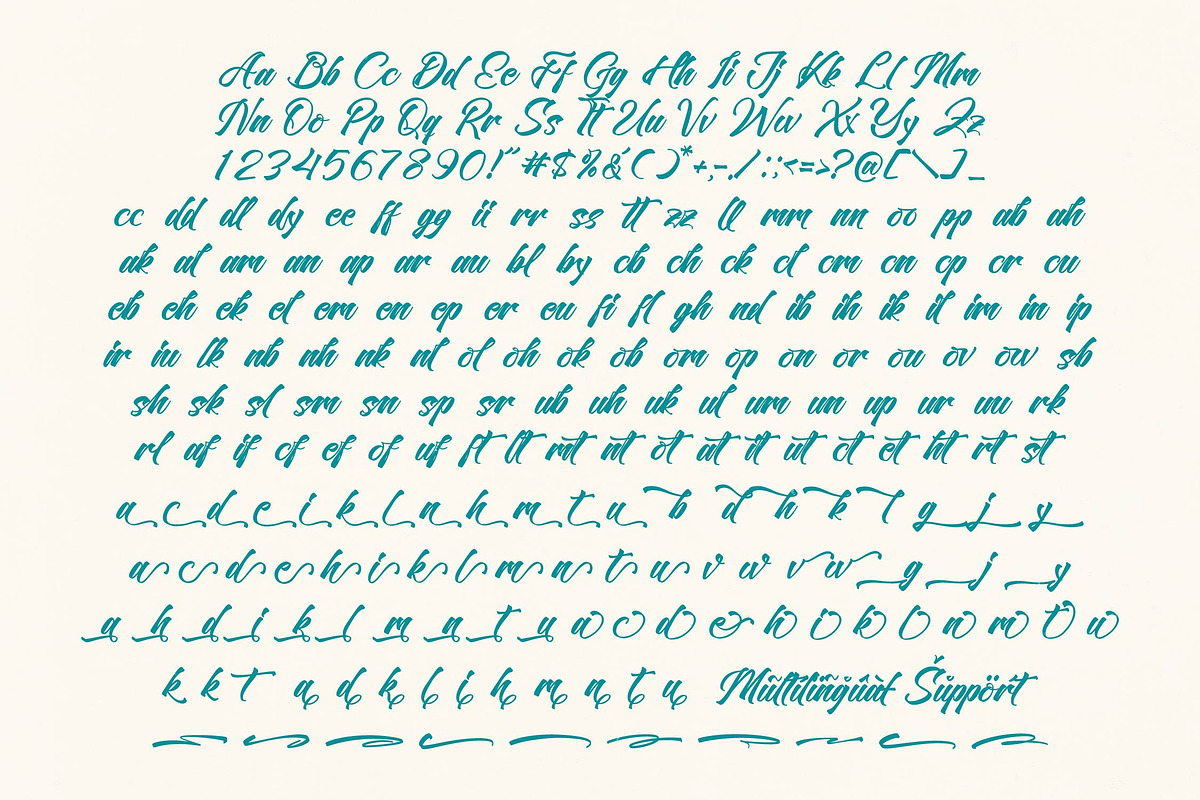 Aa Bb Cc Dd Ee Ff Gg Hh Ii Jj Kk Ll Mm
Nn Oo Pp Qq Rr Ss Tt Uu Vv Ww Xx Yy Zz
1234567890!"#$%&'()*+,-./:;<=>?@[\]_
cc dd dl dy ee ff gg ii rr ss tt zz ll mm nn oo pp ab ah
ak al am an ap ar au bl by cb ch ck cl cm cn cp cr cu
eb eh ek el em en ep er eu fi fl gh nd ib ih ik il im in ip
ir iu lk nb nh nk nl ol oh ok ob om op on or ou ov ow sb
sh sk sl sm sn sp sr ub uh uk ul um un up ur uu rk
rl af if cf ef of uf ft lt mt nt ot at it ut ct et ht rt st
a c d e i k l n h m t u b d h k l g j y
a c d e h i k l m n t u v w v w g j y
a h d i k l m n t u a c d e h i k l n m t u
k k t a d k l i h m n t u Mũltilïñgúàt Šüppört